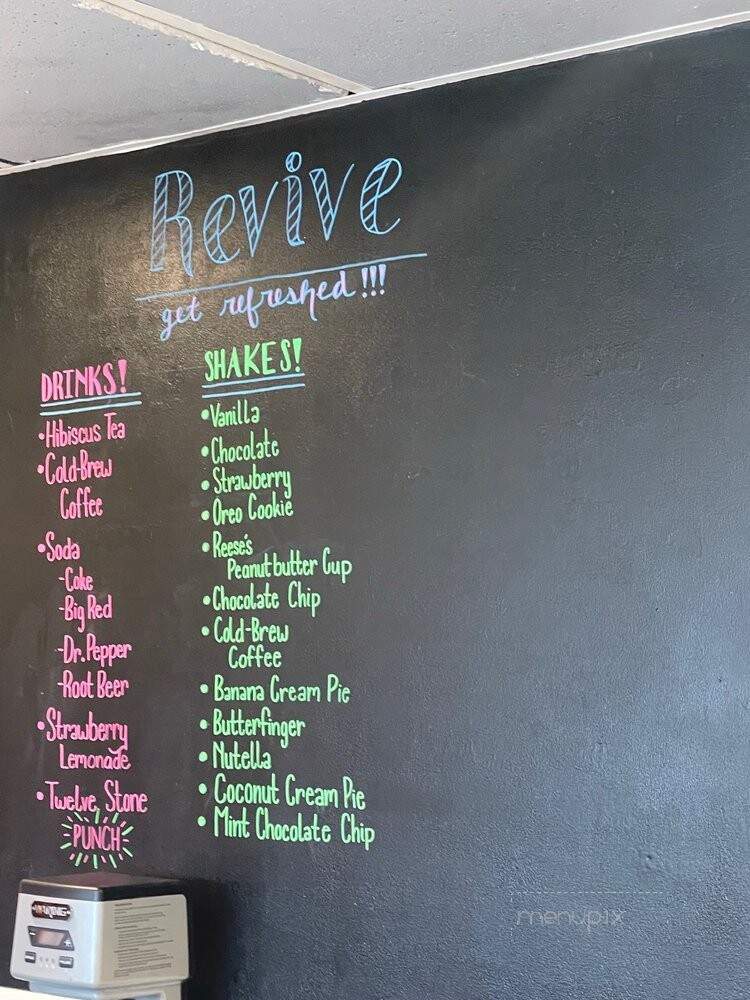 Revive
get refreshed!!!
DRINKS!
•Hibiscus Tea
•Cold-Brew
Coffee
•Soda
-Coke
-Big Red
-Dr. Pepper
-Root Beer
•Strawberry
Lemonade
•Twelve Stone
PUNCH
SHAKES!
•Vanilla
•Chocolate
•Strawberry
•Oreo Cookie
•Reese's
Peanutbutter Cup
•Chocolate Chip
•Cold-Brew
Coffee
•Banana Cream Pie
•Butterfinger
•Nutella
•Coconut Cream Pie
•Mint Chocolate Chip
WARING
menupix